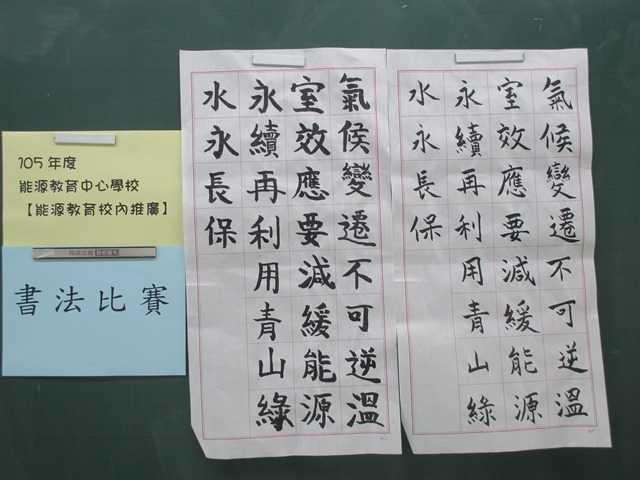 105年度
能源教育中心學校
【能源教育校內推廣】
書法比賽
氣候變遷不可逆溫
室效應要減緩能源
永續再利用青山綠
水永長保
氣候變遷不可逆溫
室效應要減緩能源
永續再利用青山綠
水永長保